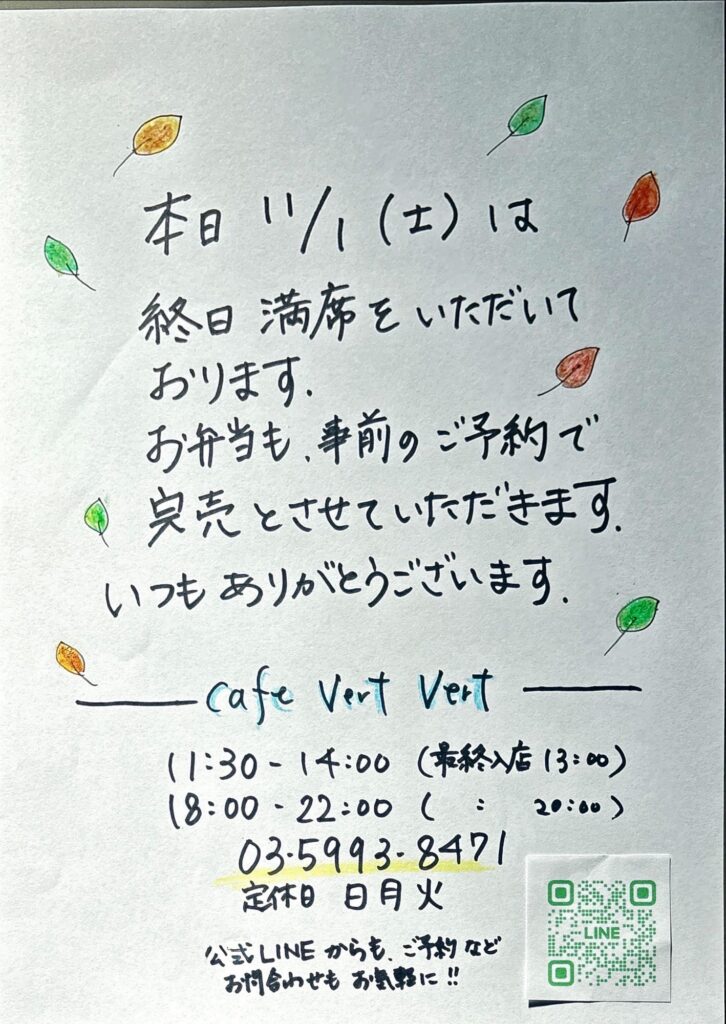 本日 11/1 (土) は
終日 満席をいただいて
おります.
お弁当も、事前のご予約で
完売とさせていただきます.
いつもありがとうございます.
cafe Vert Vert
11:30 - 14:00 (最終入店 13:00)
18:00 - 22:00 ( : 20:00)
03-5993-8471
定休日 日月火
公式LINEからも、ご予約など
お問合わせも お気軽に!!
LINE